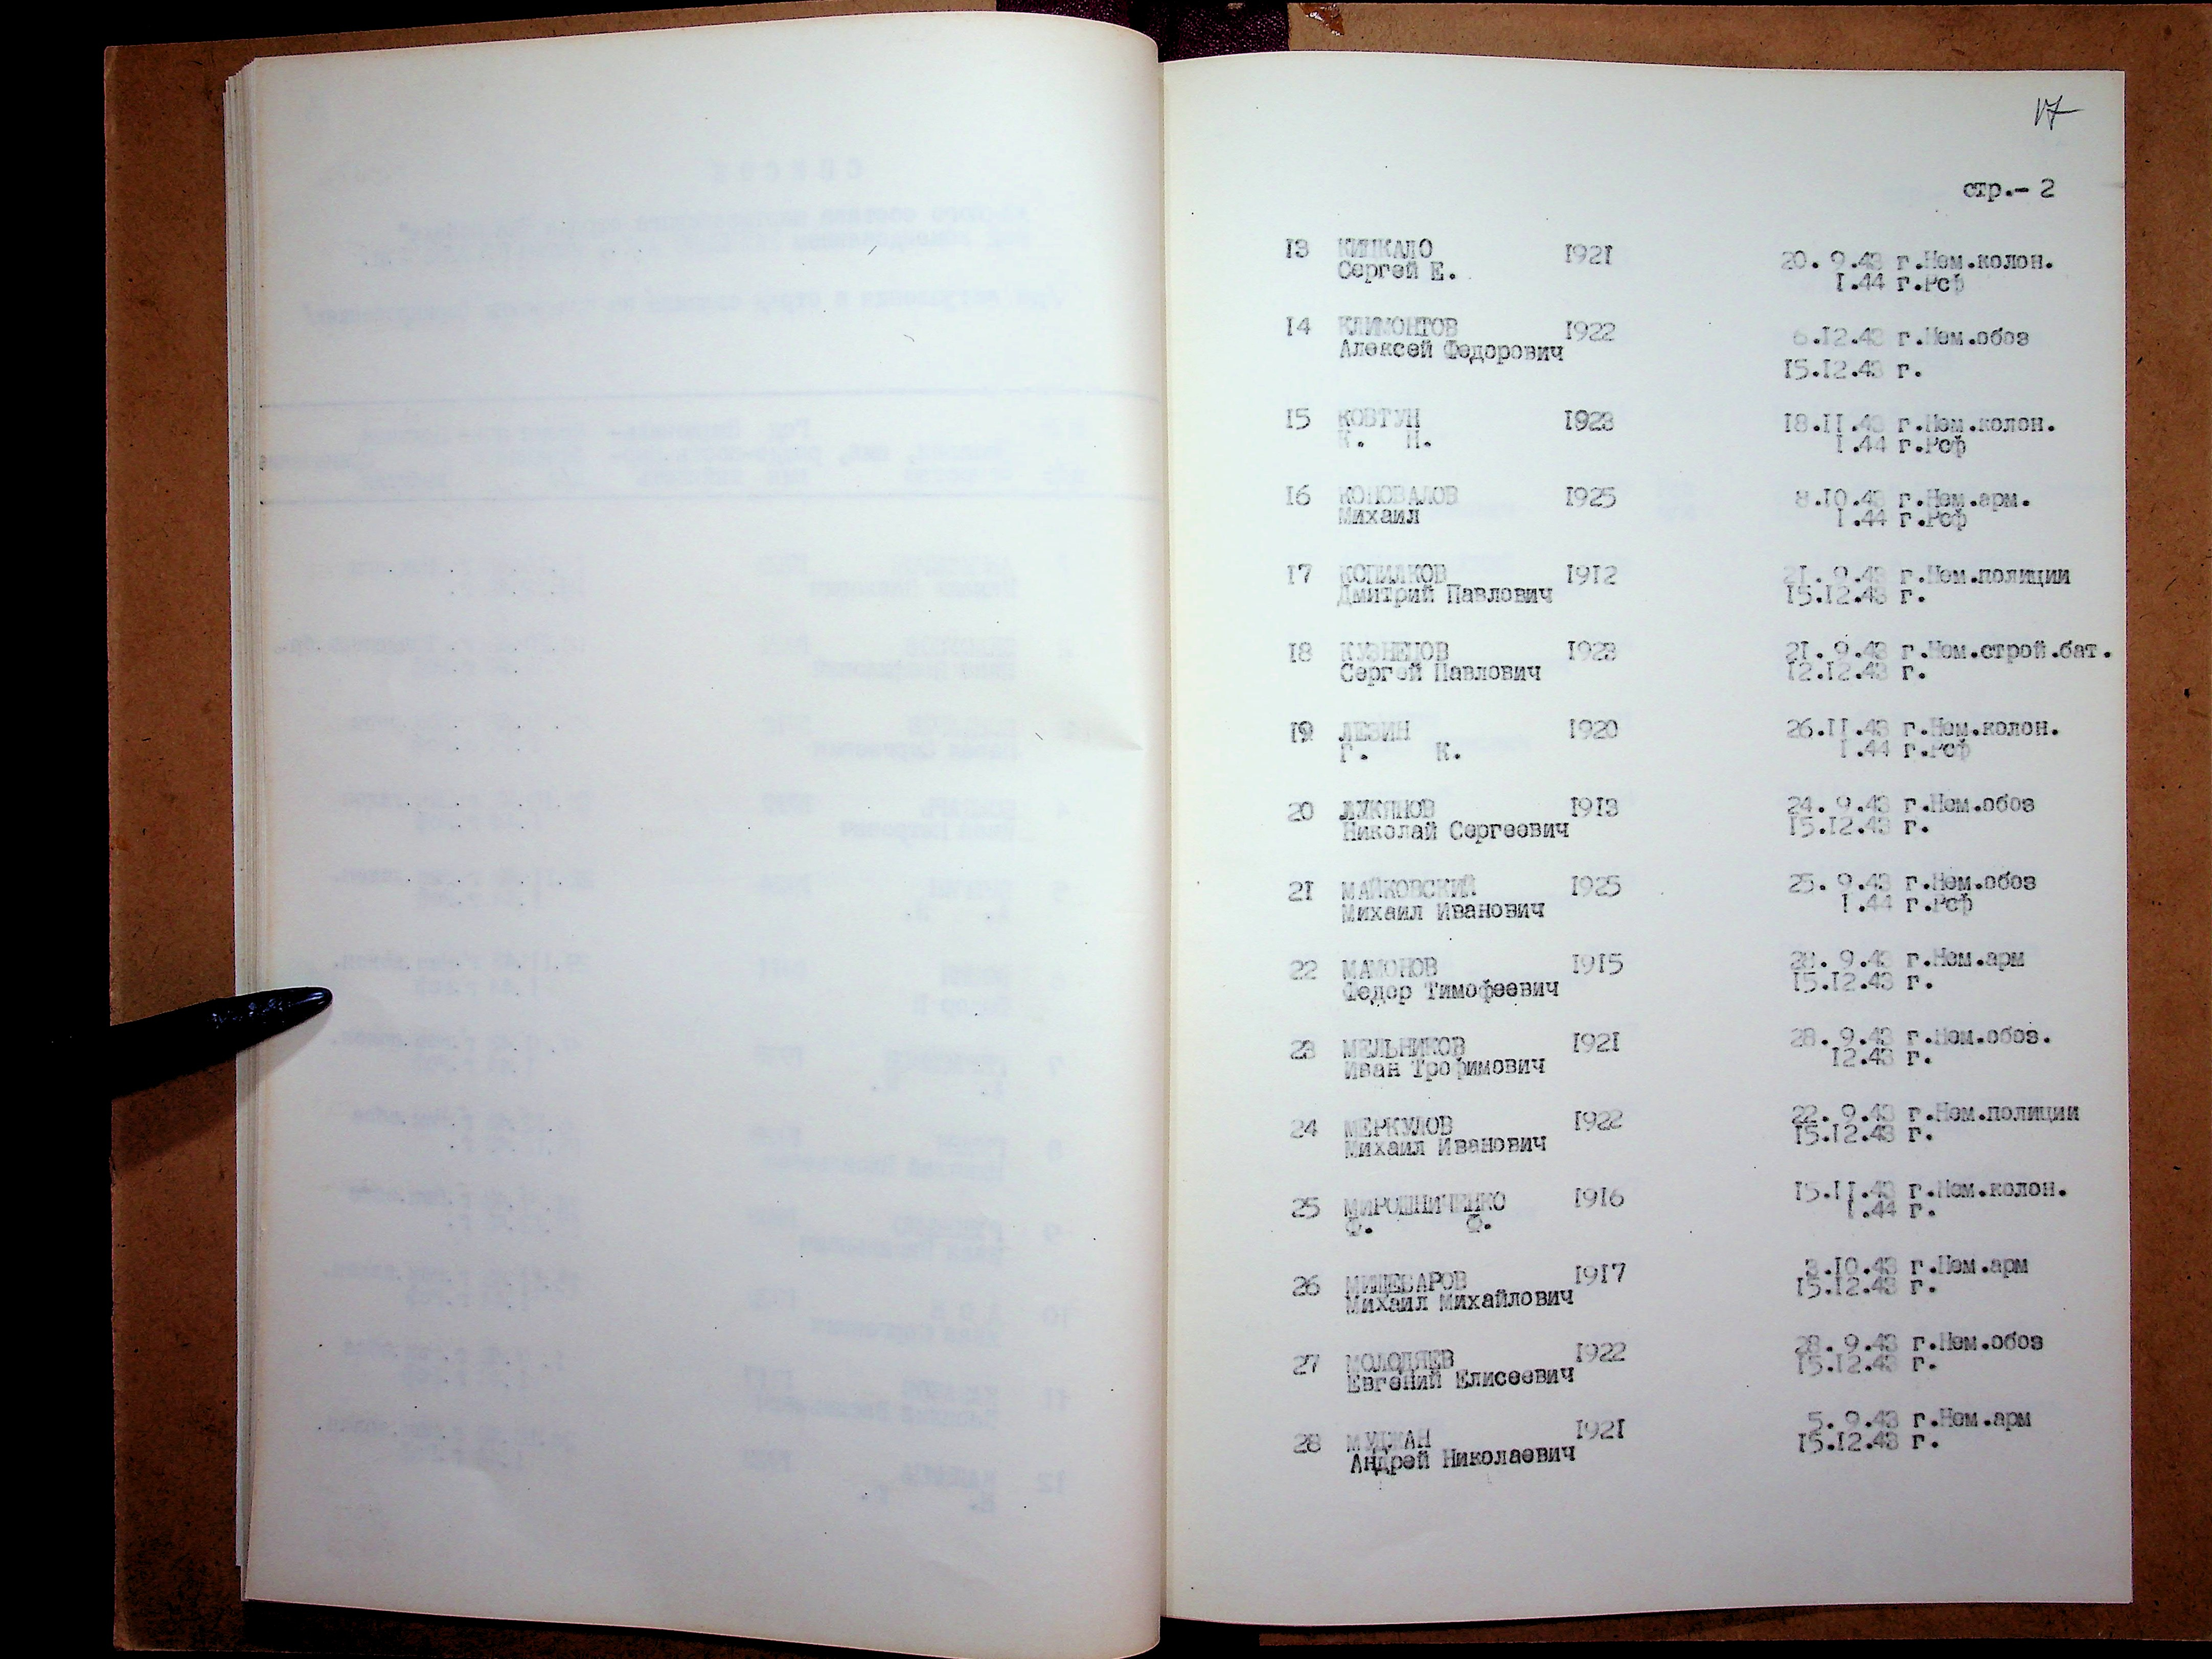 17
стр.- 2
13 КИЦКАЛО 1921 20. 9.43 г.Нем.колон.
Сергей Е. 1.44 г.Рсф
14 КЛИМОНТОВ 1922 6.12.43 г.Нем.обоз
Алексей Федорович
15.12.43 г.
15 КОВТУН 1923 18.11.43 г.Нем.колон.
К. Н. 1.44 г.Рсф
16 КОНОВАЛОВ 1925 8.10.43 г.Нем.арм.
Михаил 1.44 г.Рсф
17 КОПИЛКОВ 1912 21. 9.43 г.Нем.полиции
Дмитрий Павлович 15.12.43 г.
18 КУЗНЕЦОВ 1923 21. 9.43 г.Нем.строй.бат.
Сергей Павлович 12.12.43 г.
19 ЛЕЗИН 1920 26.11.43 г.Нем.колон.
Г. К. 1.44 г.Рсф
20 ЛУКЯНОВ 1913 24. 9.43 г.Нем.обоз
Николай Сергеевич 15.12.43 г.
21 МАЙКОВСКИЙ 1925 25. 9.43 г.Нем.обоз
Михаил Иванович 1.44 г.Рсф
22 МАМОНОВ 1915 28. 9.43 г.Нем.арм
Федор Тимофеевич 15.12.43 г.
23 МЕЛЬНИКОВ 1921 28. 9.43 г.Нем.обоз.
Иван Трофимович 12.43 г.
24 МЕРКУЛОВ 1922 22. 9.43 г.Нем.полиции
Михаил Иванович 15.12.43 г.
25 МИРОШНИЧЕНКО 1916 15.11.43 г.Нем.колон.
Ф. Ф. 1.44 г.
26 МИЩЕВАРОВ 1917 3.10.43 г.Нем.арм
Михаил Михайлович 15.12.43 г.
27 МОЛОДЯЕВ 1922 28. 9.43 г.Нем.обоз
Евгений Елисеевич 15.12.43 г.
28 МУДЖАН 1921 5. 9.43 г.Нем.арм
Андрей Николаевич 15.12.43 г.